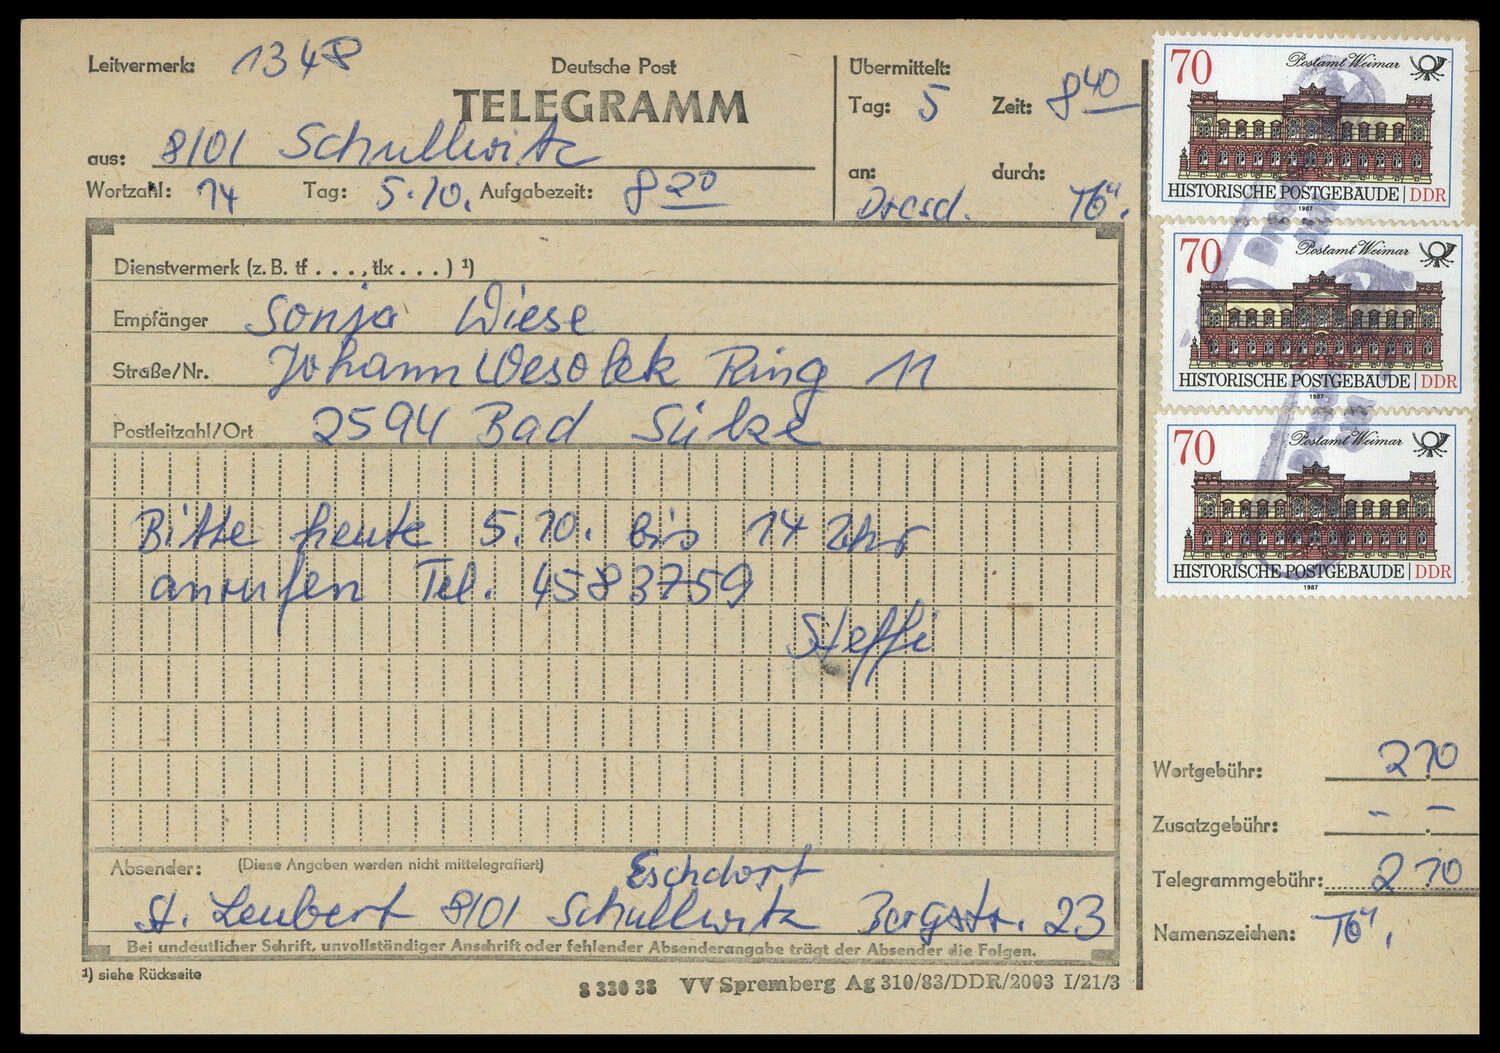 Leitvermerk: 1348
Deutsche Post
TELEGRAMM
aus: 8101 Schullwitz
Wortzahl: 14 Tag: 5.10. Aufgabezeit: 8 20
Übermittelt:
Tag: 5 Zeit: 8 40
an: durch:
Dresd. Tö
Dienstvermerk (z. B. tf . . . , tlx . . . ) ¹)
Empfänger Sonja Wiese
Straße/Nr. Johann Wesolek Ring 11
Postleitzahl/Ort 2594 Bad Sülze
Bitte heute 5.10. bis 14 Uhr
anrufen Tel. 4583759
Steffi
Absender: (Diese Angaben werden nicht mittelegrafiert) Eschdorf
St. Leubert 8101 Schullwitz Bergstr. 23
Bei undeutlicher Schrift, unvollständiger Anschrift oder fehlender Absenderangabe trägt der Absender die Folgen.
¹) siehe Rückseite
8 330 38 VV Spremberg Ag 310/83/DDR/2003 I/21/3
70 Postamt Weimar
HISTORISCHE POSTGEBÄUDE | DDR
1987
70 Postamt Weimar
HISTORISCHE POSTGEBÄUDE | DDR
1987
70 Postamt Weimar
HISTORISCHE POSTGEBÄUDE | DDR
1987
Wortgebühr: 2 10
Zusatzgebühr: - . -
Telegrammgebühr: 2 10
Namenszeichen: Tö